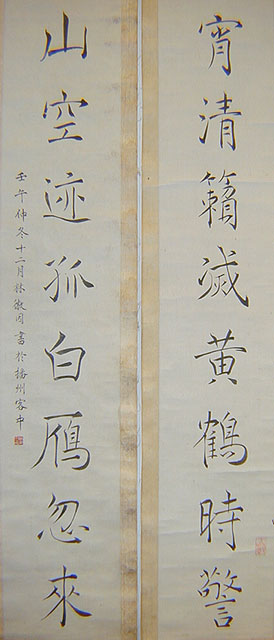 宵清籟滅黃鶴時警
山空迹孤白鴈忽來
壬午仲冬十二月林散周書於播州客中